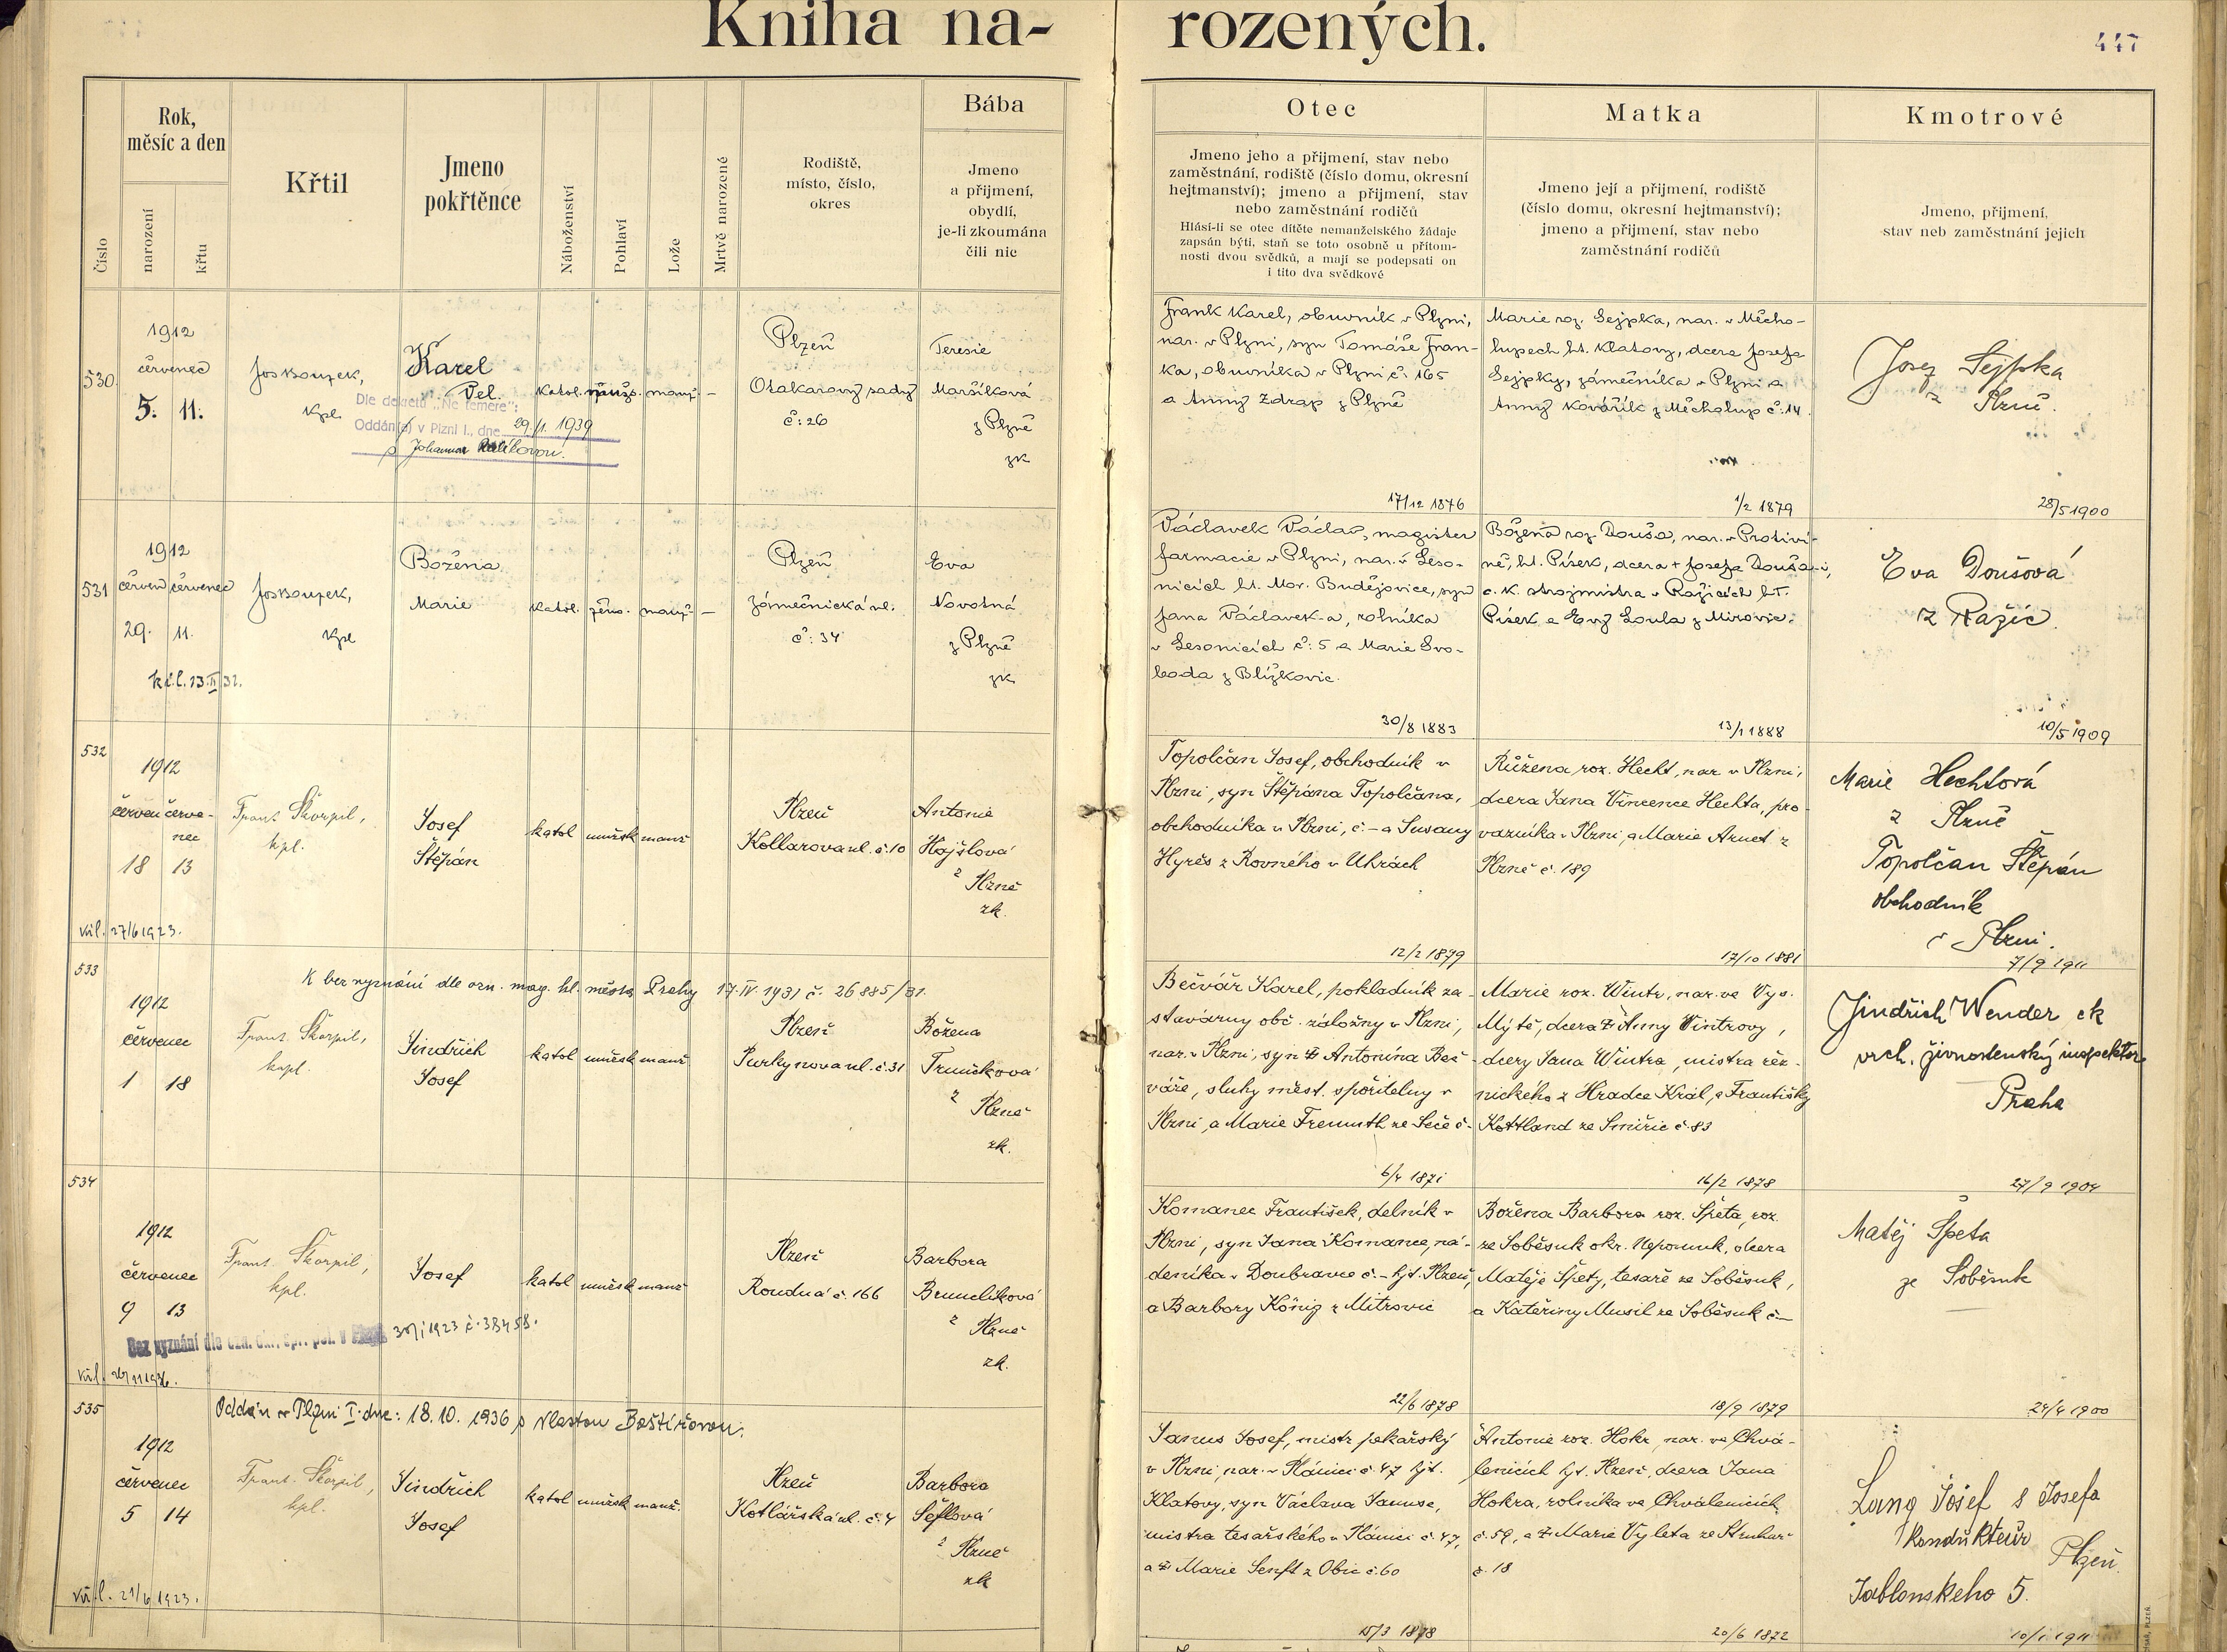 Kniha na- rozených.
447
Číslo
Rok,
měsíc a den
narození
křtu
Křtil
Jmeno
pokřtěnce
Náboženství
Pohlaví
Lože
Mrtvě narozené
Rodiště,
místo, číslo,
okres
Bába
Jmeno
a přijmení,
obydlí,
je-li zkoumána
čili nic
Otec
Jmeno jeho a přijmení, stav nebo
zaměstnání, rodiště (číslo domu, okresní
hejtmanství); jmeno a přijmení, stav
nebo zaměstnání rodičů
Hlásí-li se otec dítěte nemanželského žádaje
zapsán býti, staň se toto osobně u přítom-
nosti dvou svědků, a mají se podepsati on
i tito dva svědkové
Matka
Jmeno její a přijmení, rodiště
(číslo domu, okresní hejtmanství);
jmeno a přijmení, stav nebo
zaměstnání rodičů
Kmotrové
Jmeno, přijmení,
stav neb zaměstnání jejich
530
1912
červenec
5. 11.
Jos Bouzek,
kpl.
Karel
Vel.
Dle dekretu "Ne temere":
Oddán(a) v Plzni I., dne 29./1. 1939
s Johannou
katol.
manž.
—
Plzeň
Otakarovy sady
č: 26
Teresie
Maršíková
z Plzně
zk
Frank Karel, obuvník v Plzni,
nar. v Plzni, syn Tomáše Fran-
ka, obuvníka v Plzni č: 165
a Anny Zdrap z Plzně
17/12 1876
Marie roz. Sejpka, nar. v Měcho-
lupech ht. Klatovy, dcera Josefa
Sejpky, zámečníka v Plzni a
Anny Kovářík z Měcholup č: 14.
1/2 1879
Josef Sejpka
z Plzně.
28/5 1900
531
1912
červen červenec
29. 11.
Jos Bouzek,
kpl
Božena
Marie
katol.
žens.
manž.
—
Plzeň
Zámečnická ul.
č: 34
Eva
Novotná
z Plzně
zk
Václavek Václav, magister
farmacie v Plzni, nar. v Leso-
nicích ht. Mor. Budějovice, syn
Jana Václavek-a, rolníka
v Lesonicích č: 5 a Marie Svo-
boda z Blížkovic.
30/8 1883
Božena roz. Douša, nar. v Protiví-
ně, ht. Písek, dcera + Josefa Douša-i,
c. k. strojmistra v Ražicích ht.
Písek a Evy Loula z Mirovic.
13/1 1888
Eva Doušová
z Ražic.
10/5 1909
532
1912
červen červe-
nec
18 13
27/6 1923.
Frant. Škorpil,
kpl.
Josef
Štěpán
katol
mužsk
manž
Plzeň
Kollarova ul. č. 10
Antonie
Hajšlová
z Plzně
zk.
Topolčan Josef, obchodník v
Plzni, syn Štěpána Topolčana,
obchodníka v Plzni, č. - a Susany
Hyrěs z Rovného v Uhrách
12/2 1879
Růžena roz. Hecht, nar v Plzni,
dcera Jana Vincence Hechta, pro-
vazníka v Plzni, a Marie Arnet z
Plzně č. 189
17/10 1881
Marie Hechtová
z Plzně
Topolčan Štěpán
obchodník
v Plzni.
7/9 1911
533
K bez vyznání dle ozn. mag. hl. města Prahy 17. IV. 1931 č. 26885/31.
1912
červenec
1 18
Frant. Škorpil,
kpl.
Jindřich
Josef
katol
mužsk
manž
Plzeň
Purkyňova ul. č. 31
Božena
Truněčková
z Plzně
zk.
Bečvář Karel, pokladník za-
stavárny obč. záložny v Plzni,
nar. v Plzni, syn Antonína Beč-
váře, sluhy měst. spořitelny v
Plzni, a Marie Fremuth ze Seče č-
6/4 1871
Marie roz. Wintr, nar. ve Vys.
Mýtě, dcera Anny Wintrovy,
dcery Jana Wintra, mistra řez-
nického z Hradce Král, a Františky
Kottland ze Smiřic č. 83
16/2 1878
Jindřich Wender ck
vrch. živnostenský inspektor
Praha
27/9 1904
534
1912
červenec
9 13
Bez vyznání dle
1923 č. 38458.
Frant. Škorpil,
kpl.
Josef
katol
mužsk
manž
Plzeň
Roudná č. 166
Barbora
Brunclíková
z Plzně
zk.
Komanec František, dělník v
Plzni, syn Jana Komance, ná-
deníka v Doubravce č. - hjt. Plzeň,
a Barbory König z Mitrovic
22/6 1878
Božena Barbora roz. Špeta, roz.
ze Soběsuk okr. Nepomuk, dcera
Matěje Špety, tesaře ze Soběsuk,
a Kateřiny Musil ze Soběsuk č. —
18/9 1879
Matěj Špeta
ze Soběsuk
24/4 1900
535
Oddán v Plzni I. dne: 18. 10. 1936 s Vlastou
1912
červenec
5 14
21/6 1923.
Frant. Škorpil,
kpl.
Jindřich
Josef
katol
mužsk
manž.
Plzeň
Kotlářská ul. č. 4
Barbora
Šeflová
z Plzně
zk
Janus Josef, mistr pekařský
v Plzni, nar. v Plánici č. 47 hjt.
Klatovy, syn Václava Januse,
mistra tesařského v Plánici č. 47,
a Marie Senft z Obic č. 60
15/3 1878
Antonie roz. Hokr, nar. ve Chvá-
lenicích hjt. Plzeň, dcera Jana
Hokra, rolníka ve Chválenicích
č. 59, a Marie Vyleta ze Struhař
č. 18
20/6 1872
Lang Josef s Josefa
kondukteur Plzeň.
Jablonskeho 5.
10/1 1911